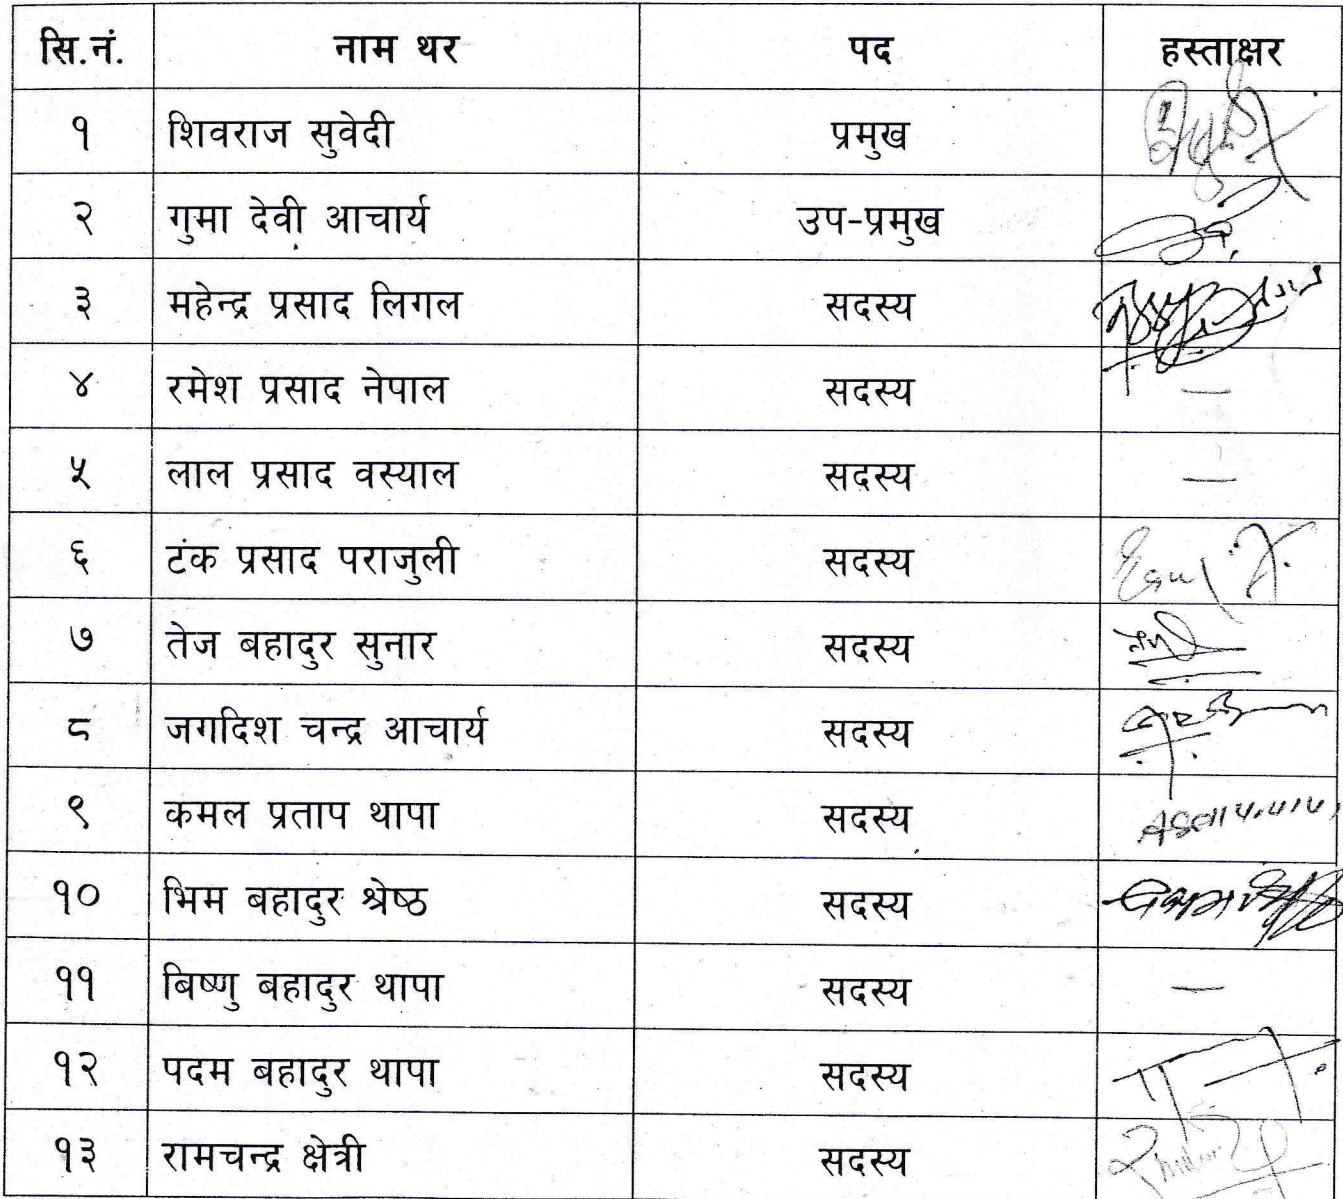 सि.नं. नाम थर पद हस्ताक्षर
१ शिवराज सुवेदी प्रमुख
२ गुमा देवी आचार्य उप-प्रमुख
३ महेन्द्र प्रसाद लिगल सदस्य
४ रमेश प्रसाद नेपाल सदस्य —
५ लाल प्रसाद वस्याल सदस्य —
६ टंक प्रसाद पराजुली सदस्य
७ तेज बहादुर सुनार सदस्य
८ जगदिश चन्द्र आचार्य सदस्य
९ कमल प्रताप थापा सदस्य
१० भिम बहादुर श्रेष्ठ सदस्य
११ बिष्णु बहादुर थापा सदस्य —
१२ पदम बहादुर थापा सदस्य
१३ रामचन्द्र क्षेत्री सदस्य